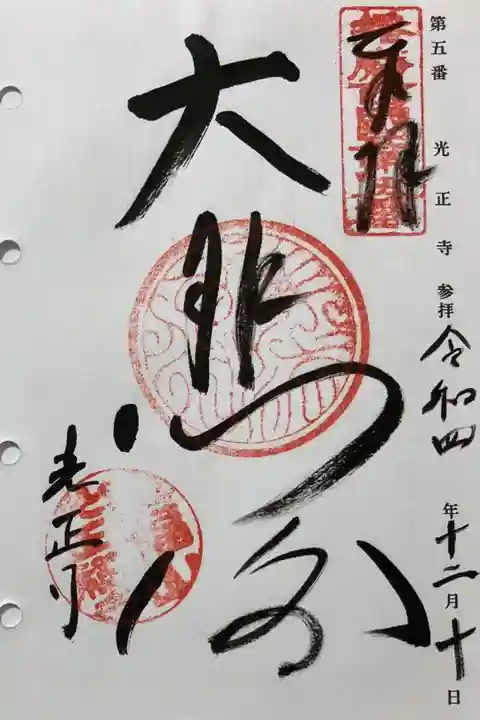 第五番 光正寺 参拝 令和四年十二月十日
奉拝
大悲殿
光正寺